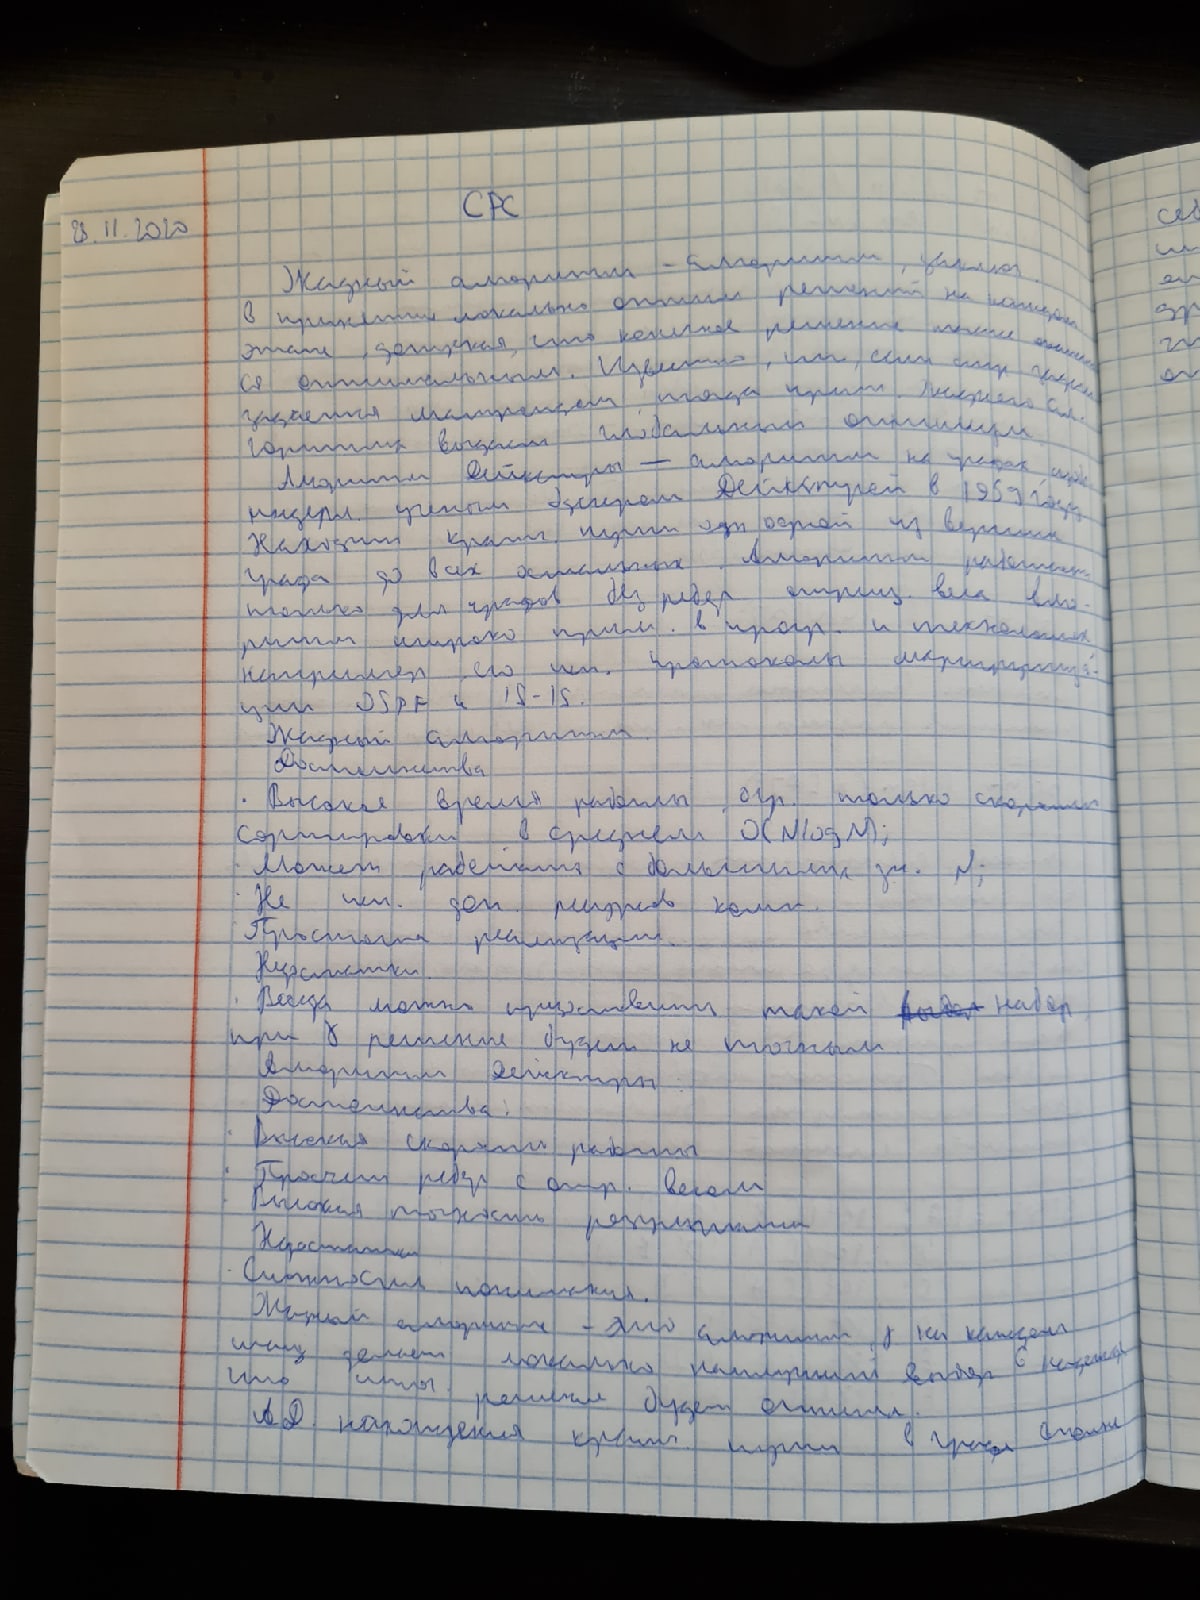 28.11.2020
СРС
Жадный алгоритм – алгоритм, заключ.
в принятии локально оптим решений на каждом
этапе, допуская, что конечное решение также окажет
ся оптимальным. Известно, что, если стр
задается матроидом, тогда прим. жадного ал-
горитма выдаст глобальный оптимум.
Алгоритм Дейкстры — алгоритм на графах
нидерл. ученым Эдсгером Дейкстрой в 1959 году
Находит кратч. пути от одной из вершин
графа до всех остальных. Алгоритм работает
только для графов без ребер отриц. веса Алго-
ритм широко прим. в прогр. и технологиях
например его исп. протоколы маршрутиза-
ции OSPF и IS-IS.
Жадный алгоритм.
Достоинства
· Высокое время работы, огр. только скоростью
сортировки в среднем O(NlogN);
· Может работать с большими зн. N;
· Не исп. доп. ресурсов комп.
· Простота реализации.
Недостатки.
· Всегда можно предоставить такой набор
при γ решение будет не точным.
Алгоритм Дейкстры.
Достоинства:
· Высокая скорость работы
· Просчет ребер с отр. весом
· Высокая точность результата
Недостатки
· Сложность понимания.
Жадный алгоритм – это алгоритм, γ на каждом
шагу делает локально наилучший выбор в надежде
что итог. решение будет оптим.
АД. нахождения кратч. пути в графе